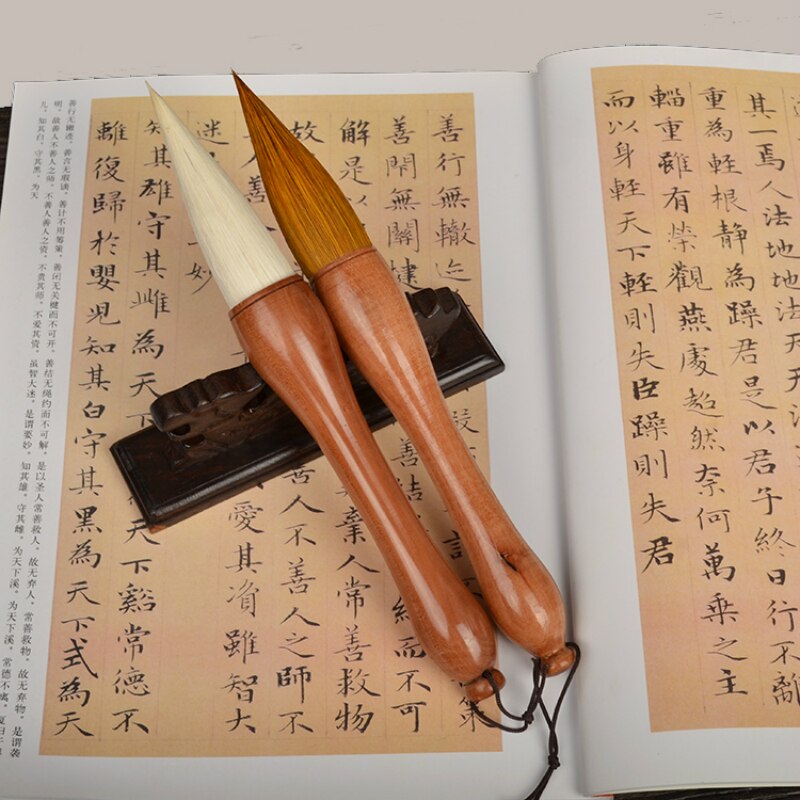 其一焉人法地地法天
重為輕根靜為躁君是以君子終日行不離
輜重雖有榮觀燕處超然奈何萬乘之主
而以身輕天下輕則失臣躁則失君
善行無轍迹 策
善閉無關楗 善結 約而不可
解是以 棄人常善救物
故 善人不善人之師不
人善 愛其資雖智大
迷 妙
知其雄守其雌為天下 天下谿常德不
離復歸於嬰兒知其白守其黑為天下式為天
善行无辙迹，善言无瑕谪，善计不用筹策，善闭无关键而不可开，善结无绳约而不可解。是以圣人常善救人，故无弃人，常善救物，故无弃物。是谓袭
明。故善人不善人之师，不善人善人之资。不贵其师，不爱其资，虽智大迷，是谓要妙。知其雄，守其雌，为天下溪。为天下溪，常德不离，复归于
儿。知其白，守其黑，为天